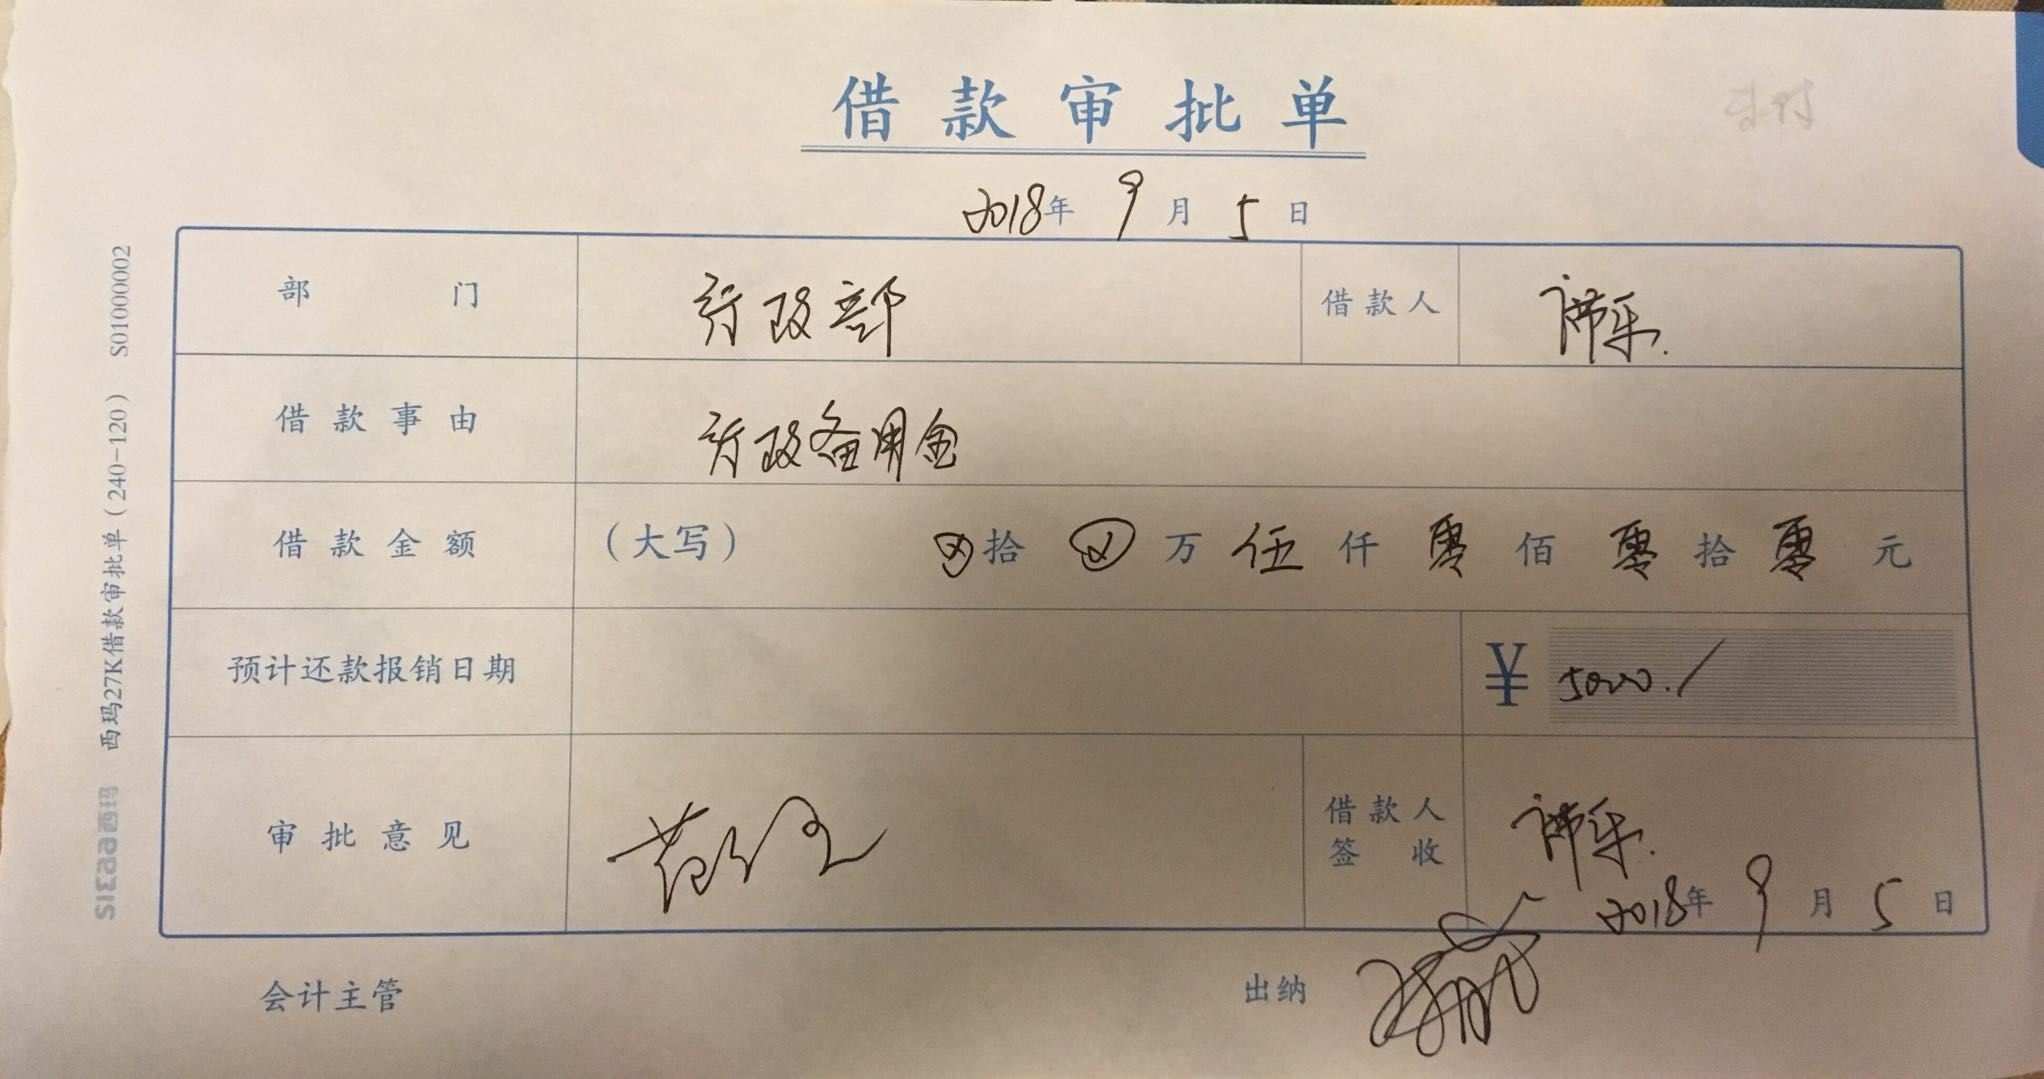 借款审批单
2018年 9月 5日
部门 行政部 借款人
借款事由 行政备用金
借款金额 (大写) ⊗拾 ⊗万 伍仟 零佰 零拾 零元
预计还款报销日期 ¥ 5000./
审批意见 借款人签收
2018年 9月 5日
会计主管 出纳
SIMAA西玛 西玛27K借款审批单(240-120) S01000002